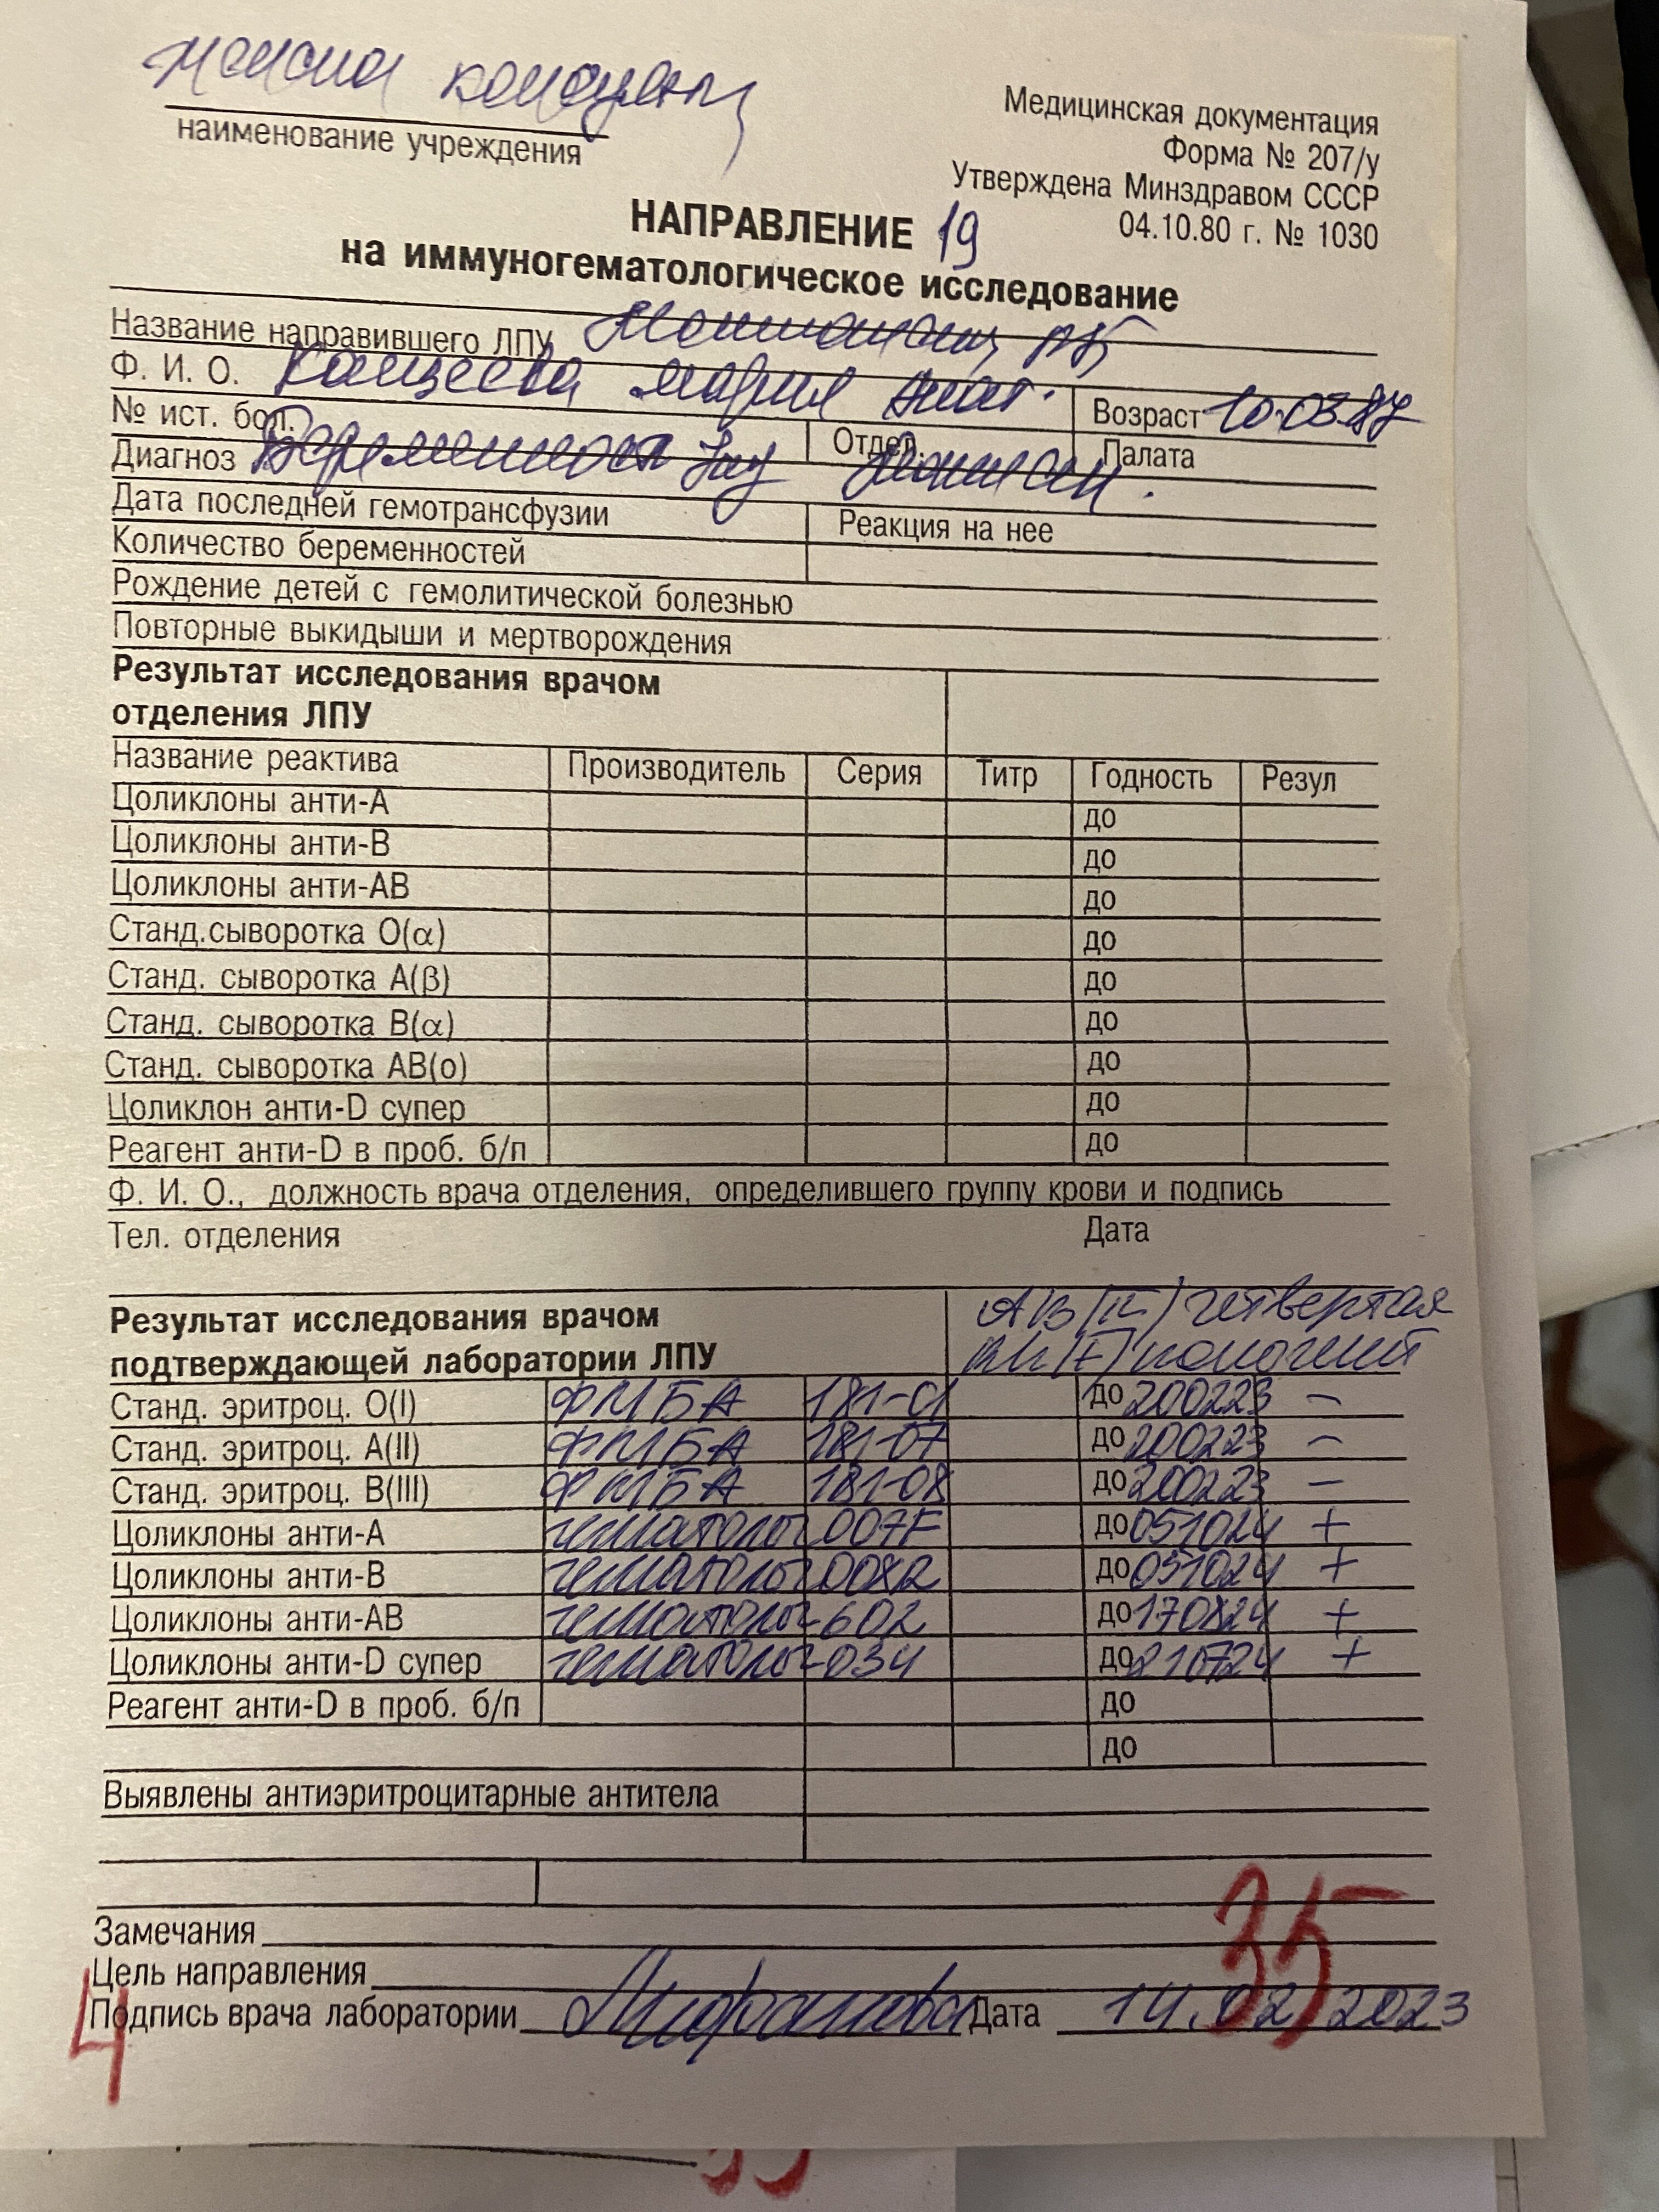 женская консульт
наименование учреждения
Медицинская документация
Форма № 207/у
Утверждена Минздравом СССР
04.10.80 г. № 1030
НАПРАВЛЕНИЕ 19
на иммуногематологическое исследование
Название направившего ЛПУ
Ф. И. О. Мария Анат. Возраст 10.03.87
№ ист. бол. Отдел. Палата
Диагноз Беременность
Дата последней гемотрансфузии Реакция на нее
Количество беременностей
Рождение детей с гемолитической болезнью
Повторные выкидыши и мертворождения
Результат исследования врачом
отделения ЛПУ
Название реактива Производитель Серия Титр Годность Резул
Цоликлоны анти-А до
Цоликлоны анти-В до
Цоликлоны анти-АВ до
Станд.сыворотка О(α) до
Станд. сыворотка А(β) до
Станд. сыворотка В(α) до
Станд. сыворотка АВ(о) до
Цоликлон анти-D супер до
Реагент анти-D в проб. б/п до
Ф. И. О., должность врача отделения, определившего группу крови и подпись
Тел. отделения Дата
Результат исследования врачом АВ (IV) четвертая
подтверждающей лаборатории ЛПУ Rh (+)
Станд. эритроц. О(I) ФМБА 181-01 до 200223 −
Станд. эритроц. А(II) ФМБА 181-07 до 200223 −
Станд. эритроц. В(III) ФМБА 181-08 до 200223 −
Цоликлоны анти-А гематолог 007F до 051024 +
Цоликлоны анти-В гематолог до 051024 +
Цоликлоны анти-АВ гематолог 602 до 170824 +
Цоликлоны анти-D супер гематолог 034 до 210724 +
Реагент анти-D в проб. б/п до
до
Выявлены антиэритроцитарные антитела
Замечания
35
Цель направления
Подпись врача лаборатории Дата 14.02.2023
4